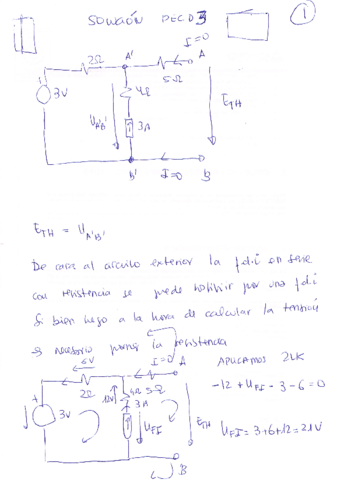 SOLUCIÓN PEC D3
1
I=0
2Ω A' A
5Ω
4Ω
3V
U_A'B' 3A E_TH
B' I=0 B
E_TH = U_A'B'
De cara al circuito exterior la f.d.i en serie
con resistencia se puede sustituir por una f.d.i
Si bien luego a la hora de calcular la tensión
es necesario poner la resistencia
6V I=0 A
2Ω 4Ω 5Ω
12V 3A
3V U_FI E_TH
B
APLICAMOS 2LK
-12 + U_FI - 3 - 6 = 0
U_FI = 3+6+12 = 21V